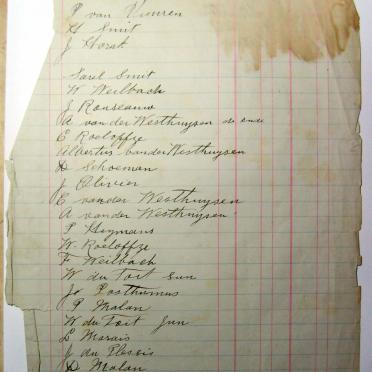 P van Vuuren
H Smit
J Horak
Sarel Smit
W Weilbach
J Rouseauw
A van der Westhuysen de oude
E Roeloffze
Albertus van der Westhuysen
D Schoeman
J Olivier
E van der Westhuysen
A van der Westhuysen
P Heymans
W. Roeloffze
F Weilbach
W du Toit Sen
Js Posthumus
P Malan
W du Toit Jun
L Marais
J du Plessis
D Malan